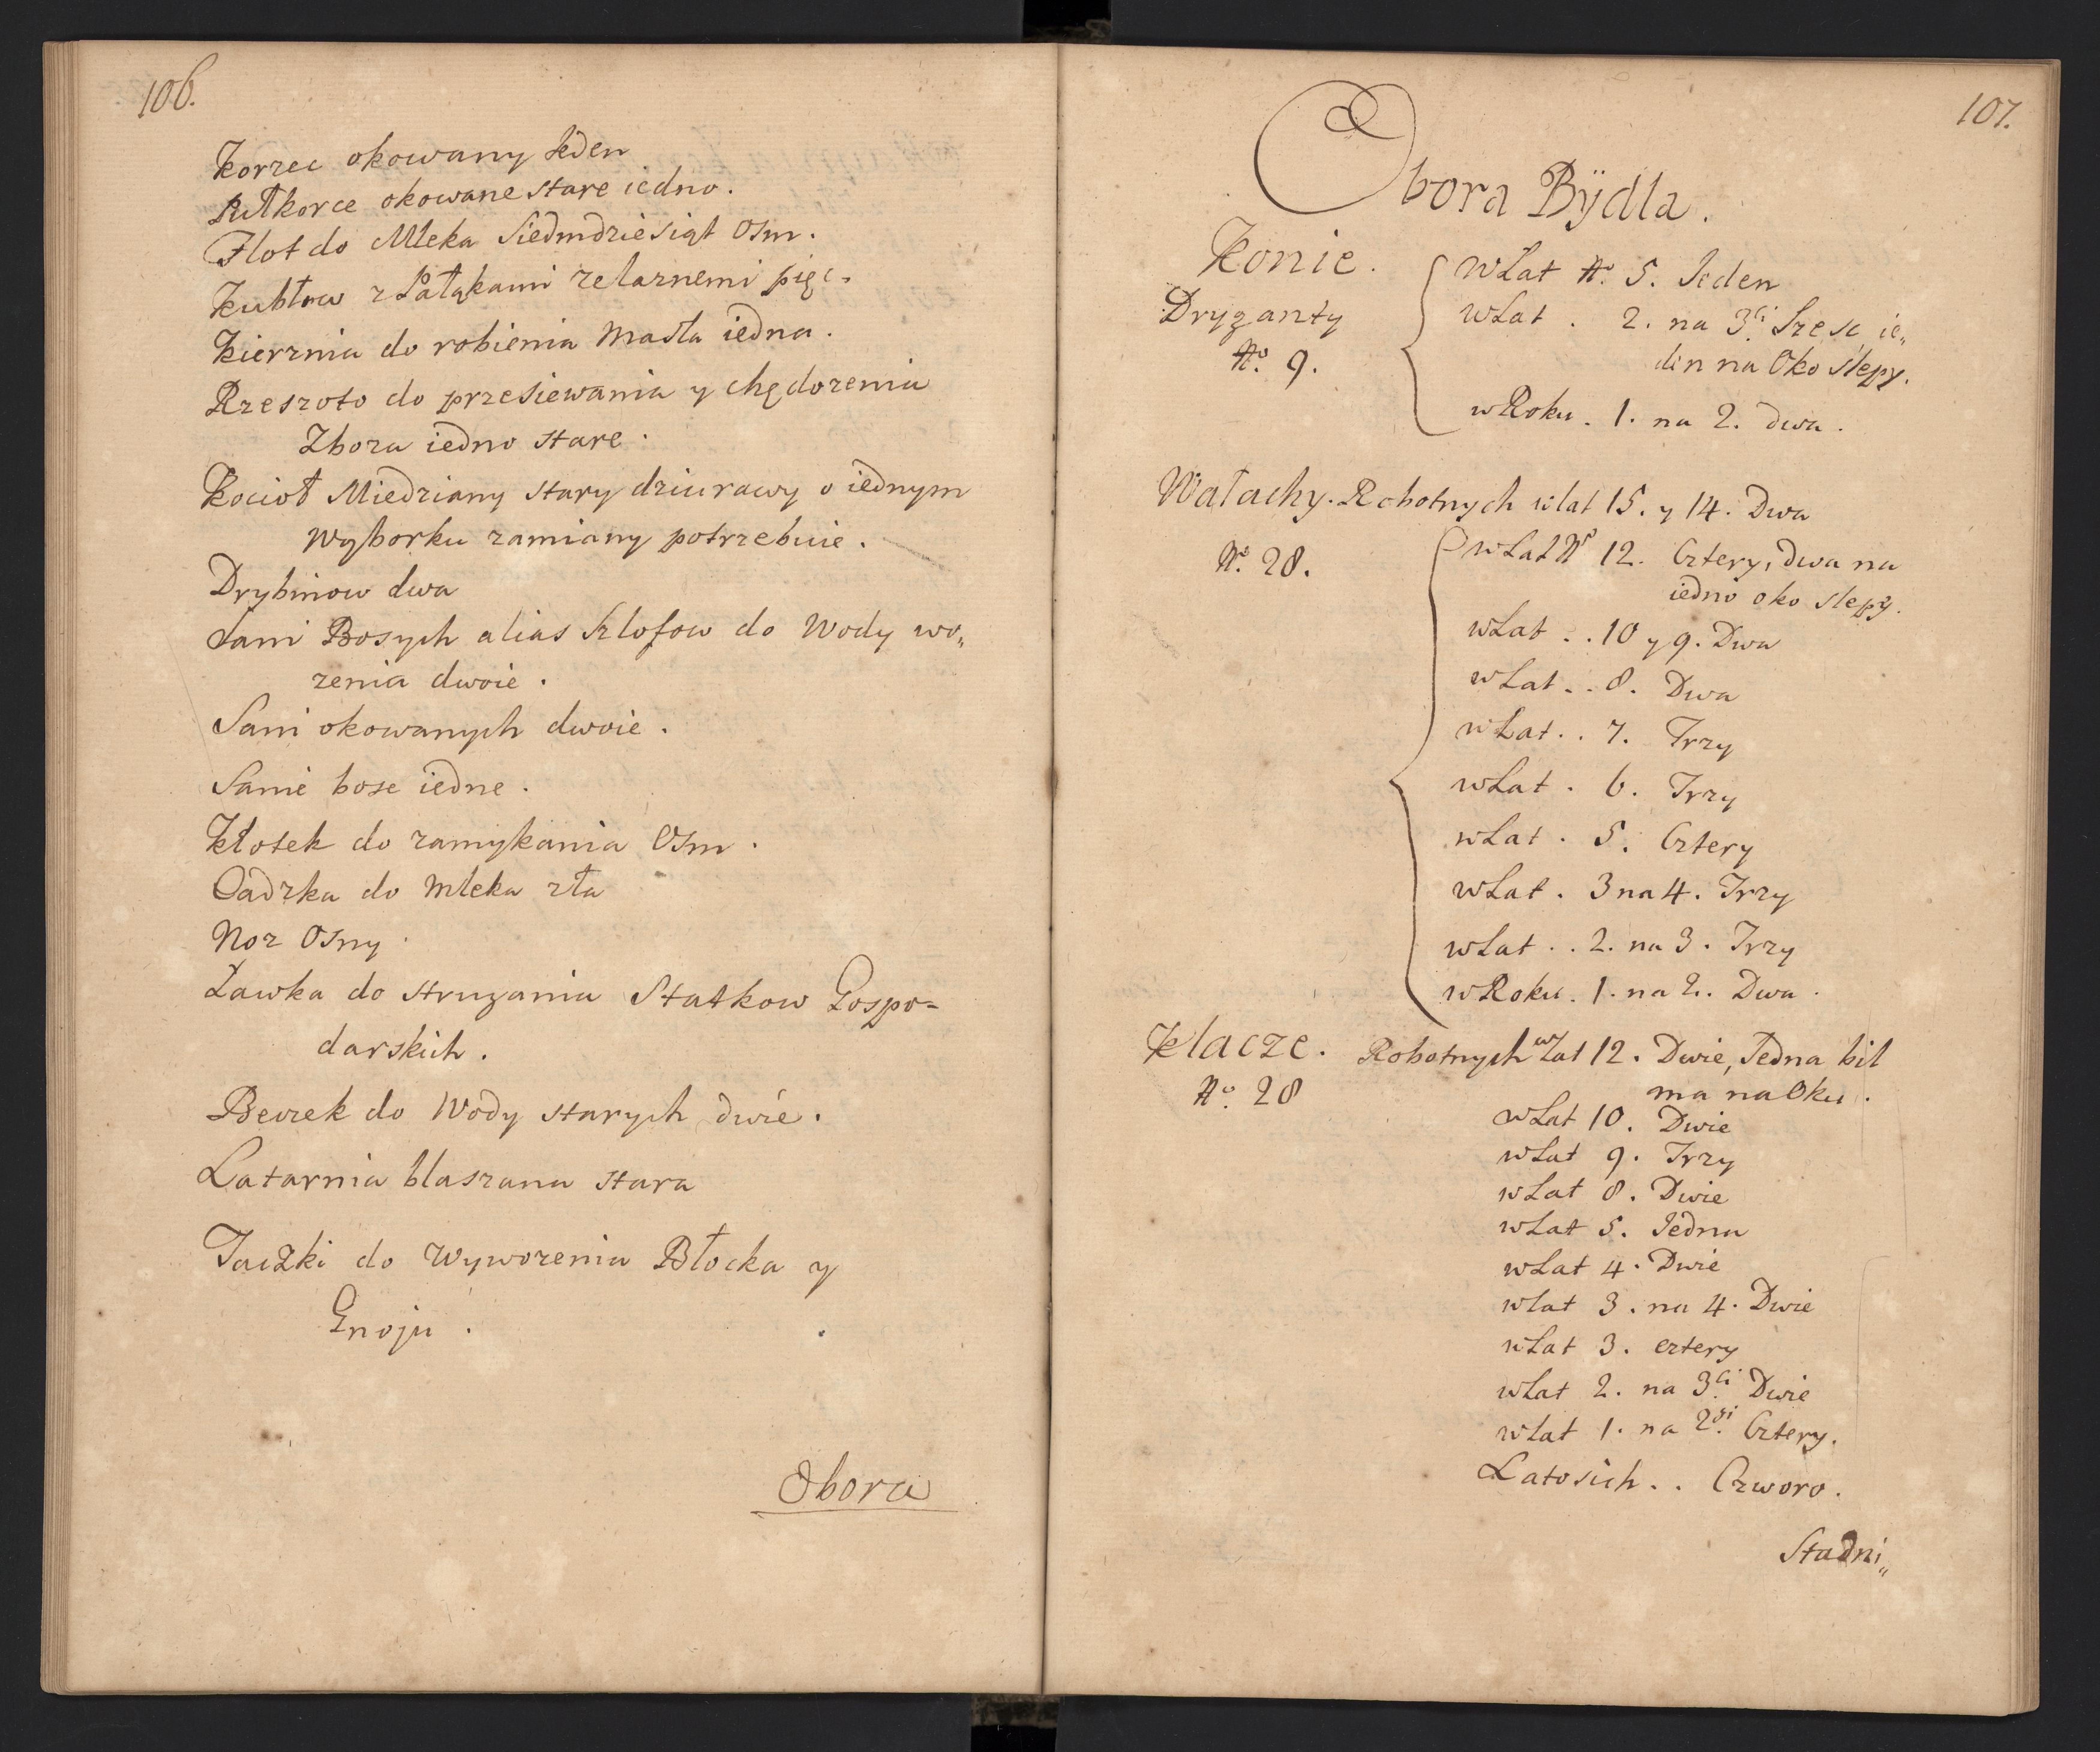 106.
Korzec okowany Jeden
Pułkorce okowane stare iedno.
Flot do Mleka Siedmdziesiąt Osm.
Kubłow z Pałąkami żelaznemi pięc.
Kierznia do robienia Masła iedna.
Rzeszoto do przesiewania y chędożenia
Zboża iedno stare.
Kocioł Miedziany stary dziurawy o iednym
Wyborku zamiany potrzebuie.
Drybinow dwa
Sani Bosych alias Szlofow do Wody wo„
żenia dwoie.
Sani okowanych dwoie.
Sanie bose iedne.
Kłotek do zamykania Osm.
Cadzka do Mleka zła
Noż Osny
Ławka do strugania Statkow Gospo=
darskich.
Beczek do Wody starych dwie.
Latarnia blaszana stara
Taczki do wywożenia Błocka y
Gnoju.
Obora
107.
Obora Bÿdla.
Konie.
Dryganty
No. 9.
w Lat No. 5. Jeden
w Lat . 2. na 3ci Szesc ie„
den na Oko slepy.
w Roku. 1. na 2. dwa.
Wałachy. Robotnych w lat 15. y 14. Dwa
No. 28.
w Lat No 12. Cztery, dwa na
iedno oko slepy.
w Lat . . 10 y 9. Dwa
w Lat . . 8. Dwa
w Lat . . 7. Trzy
w Lat . 6. Trzy
w Lat . 5. Cztery
w Lat . 3 na 4. Trzy
w Lat . . 2. na 3. Trzy
w Roku. 1. na 2. Dwa.
Klacze. Robotnych w Lat 12. Dwie, Jedna bil
ma na Oku.
No. 28
w Lat 10. Dwie
w Lat 9. Trzy
w Lat 8. Dwie
w Lat 5. Jedna
w Lat 4. Dwie
w lat 3. na 4. Dwie
w Lat 3. cztery
w Lat 2. na 3ci. Dwie
w Lat 1. na 2gi. Cztery.
Latosich . . Czworo.
Stadni„